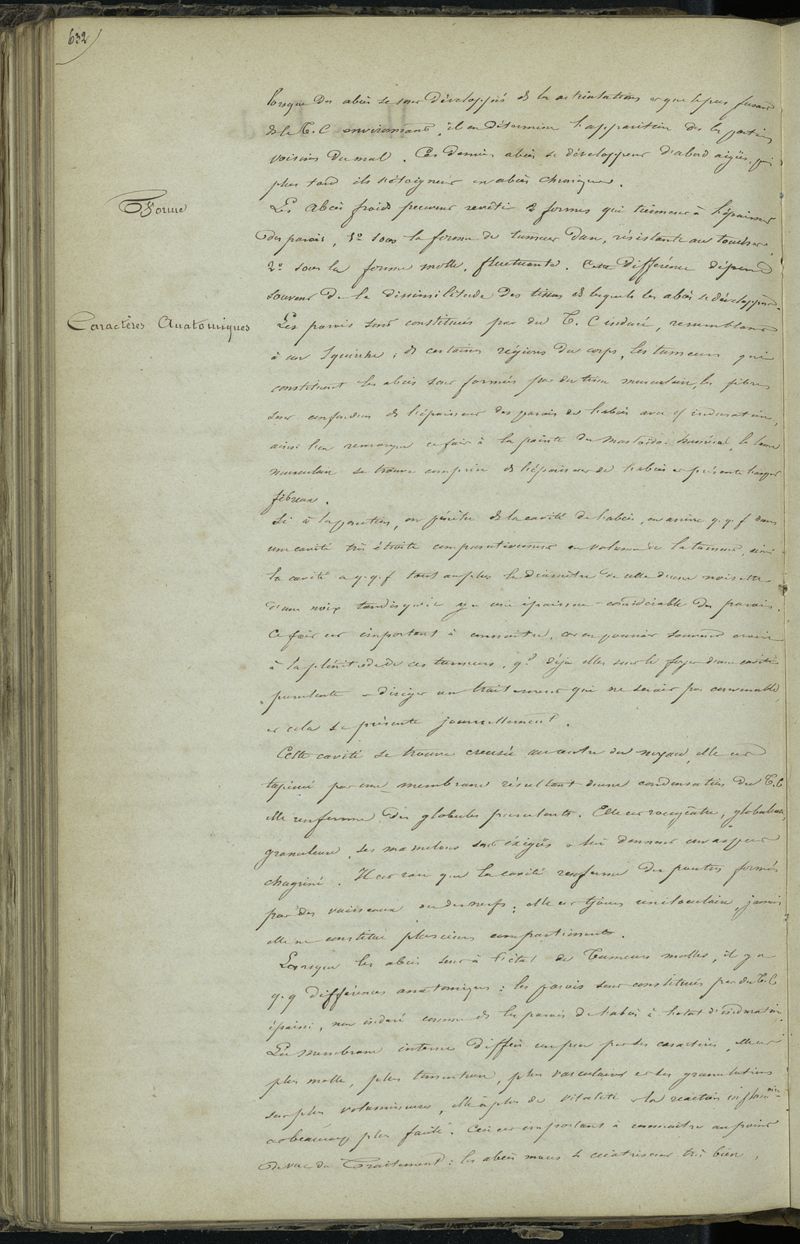 632
lorsque des abcès se sont développés ds les articulations et que le pus fusant
ds le T. C environnant, il en détermine l'apparition ds les parties
voisines du mal. Ces derniers abcès se développent d'abord aigus,
plus tard ils s'éloignent en abcès chroniques.
Forme
Les Abcès froids peuvent revêtir 2 formes qui tiennent à l'épaisseur
des parois, 1º sous la forme de tumeur dure, résistante au toucher
2º sous la forme molle, fluctuante. Cette différence dépend
souvent de la dissimilitude des tissus ds lesquels les abcès se développent.
Caractères Anatomiques
Les parois sont constitués par du T. C induré, ressemblant
à un squirrhe; ds certaines régions du corps, les tumeurs qui
constituent les abcès sont formés par du tissu musculaire, les fibres
sont confondues ds l'épaisseur des parois de l'abcès avec induration,
ainsi l'on remarque ce fait à la pointe du Mastoïde, le
musculaire se trouve comprise ds l'épaisseur de l'abcès et présente l'aspect
fibreux.
Si à la ponction, on pénètre ds la cavité de l'abcès, on arrive q.q.f dans
une cavité très étroite comparativement au volume de la tumeur, ainsi
la cavité a q.q.f tout au plus le diamètre de celle d'une noisette
d'une noix tandis qu'il y a une épaisseur considérable des parois.
Ce fait est important à connaître, car on pourrait souvent croire
à la plénitude de ces tumeurs, qd déjà elles sont le foyer d'une cavité
purulente et diriger un traitement qui ne serait pas convenable,
et cela se présente journellement.
Cette cavité se trouve creusée au centre du noyau, elle est
tapissé par une membrane résultant d'une condensation du T. C.
elle renferme des globules purulents. Elle est rougeâtre, globuleuse,
granuleuse, ses mamelons sont exigus et lui donnent un aspect
chagriné. Il est rare que la cavité renferme des ponts formés
par des vaisseaux ou des nerfs; elle est tjours uniloculaire, jamais
elle ne constitue plusieurs compartiments.
Lorsque les abcès sont à l'état de Tumeurs molles, il y a
q.q différences anatomiques: les parois sont constitués par du T. C
épaissi, non induré comme ds les parois de l'abcès à l'état d'induration
La membrane interne diffère un peu par ses caractères, elle est
plus molle, plus tomenteuse, plus vasculaire et les granulations
sont plus volumineuses, elle a plus de vitalité et la réaction inflammre
est beaucoup plus facile. Ceci est important à connaître au point
de vue du Traitement: les abcès mous se cicatrisent très bien,